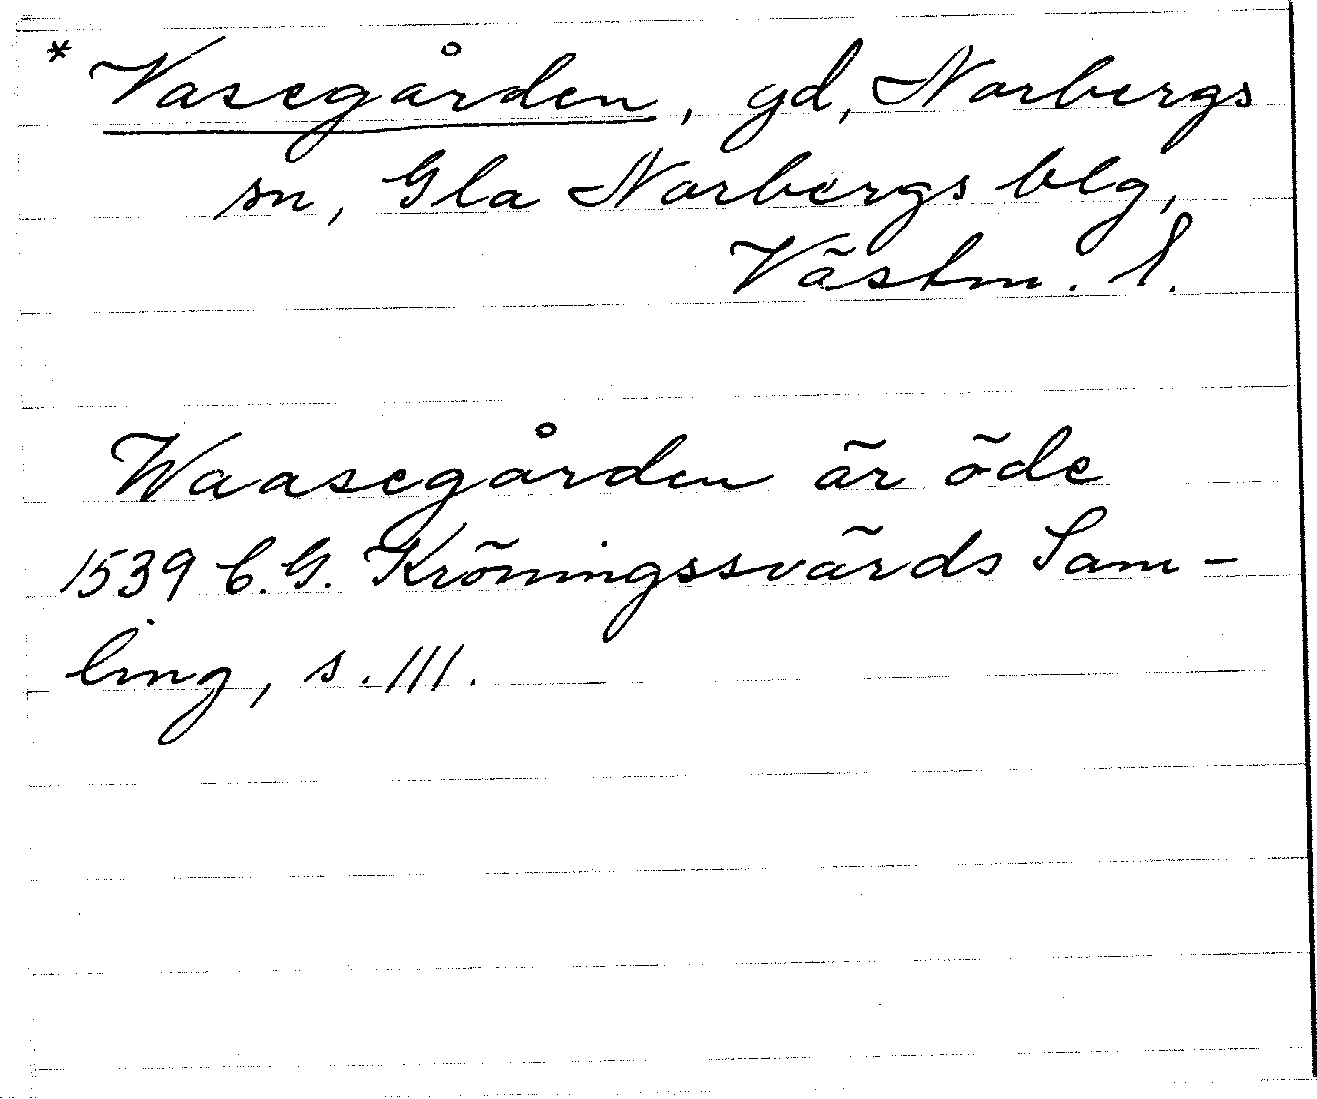 * Vasegården, gd, Norbergs
sn, Gla Norbergs blg,
Västm. l.
Waasegården är öde
1539 C.G. Kröningssvärds Sam-
ling, s. 111.